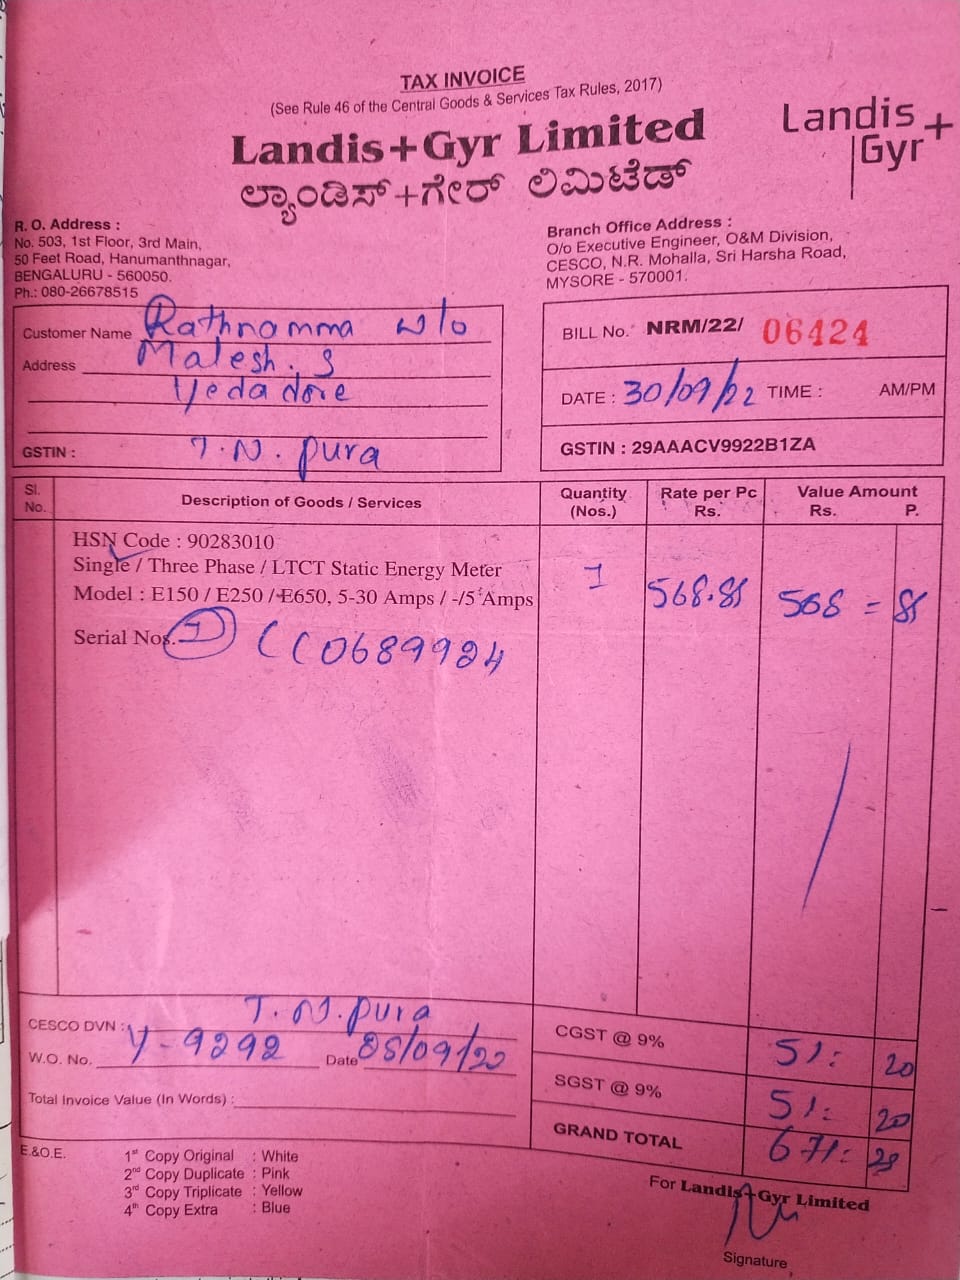 TAX INVOICE
(See Rule 46 of the Central Goods & Services Tax Rules, 2017)
Landis+Gyr Limited
ಲ್ಯಾಂಡಿಸ್+ಗೇರ್ ಲಿಮಿಟೆಡ್
Landis
Gyr+
R. O. Address :
No. 503, 1st Floor, 3rd Main,
50 Feet Road, Hanumanthnagar,
BENGALURU - 560050.
Ph.: 080-26678515
Branch Office Address :
O/o Executive Engineer, O&M Division,
CESCO, N.R. Mohalla, Sri Harsha Road,
MYSORE - 570001.
Customer Name Rathnamma w/o
Address Malesh. S
Yedadore
GSTIN : T.N. pura
BILL No. NRM/22/ 06424
DATE : 30/09/22 TIME : AM/PM
GSTIN : 29AAACV9922B1ZA
Sl. No. Description of Goods / Services Quantity (Nos.) Rate per Pc Rs. Value Amount Rs. P.
HSN Code : 90283010
Single / Three Phase / LTCT Static Energy Meter 1
Model : E150 / E250 / E650, 5-30 Amps / -/5 Amps 568.85 568 = 85
Serial Nos. 1 CC0689924
CESCO DVN : T.N. pura
W.O. No. Y-9292 Date 05/09/22
Total Invoice Value (In Words) :
CGST @ 9% 51: 20
SGST @ 9% 51: 20
GRAND TOTAL 671: 25
E.&O.E.
1st Copy Original : White
2nd Copy Duplicate : Pink
3rd Copy Triplicate : Yellow
4th Copy Extra : Blue
For Landis+Gyr Limited
Signature